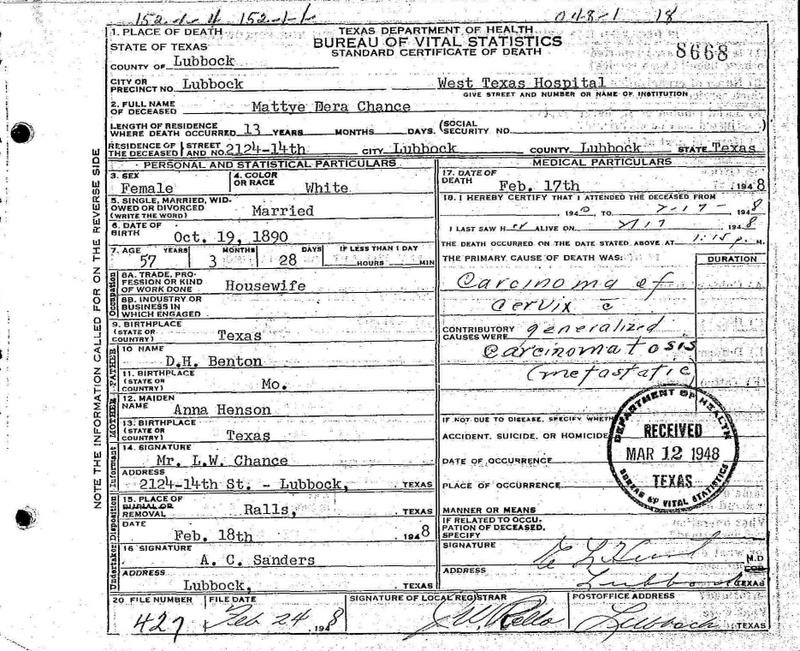 152-1-4 152-1-1 048-1 18
TEXAS DEPARTMENT OF HEALTH
BUREAU OF VITAL STATISTICS
STANDARD CERTIFICATE OF DEATH
8668
1. PLACE OF DEATH
STATE OF TEXAS
COUNTY OF Lubbock
CITY OR PRECINCT NO. Lubbock West Texas Hospital
GIVE STREET AND NUMBER OR NAME OF INSTITUTION
2. FULL NAME OF DECEASED Mattye Dera Chance
LENGTH OF RESIDENCE WHERE DEATH OCCURRED 13 YEARS MONTHS DAYS. (SOCIAL SECURITY NO. )
RESIDENCE OF THE DECEASED (STREET AND NO. 2124-14th CITY Lubbock COUNTY Lubbock STATE Texas
PERSONAL AND STATISTICAL PARTICULARS
3. SEX Female 4. COLOR OR RACE White
5. SINGLE, MARRIED, WIDOWED OR DIVORCED (WRITE THE WORD) Married
6. DATE OF BIRTH Oct. 19, 1890
7. AGE YEARS MONTHS DAYS IF LESS THAN 1 DAY
57 3 28 HOURS MIN
Occupation
8A. TRADE, PROFESSION OR KIND OF WORK DONE Housewife
8B. INDUSTRY OR BUSINESS IN WHICH ENGAGED
9. BIRTHPLACE (STATE OR COUNTRY) Texas
FATHER
10 NAME D.H. Benton
11. BIRTHPLACE (STATE OR COUNTRY) Mo.
MOTHER
12. MAIDEN NAME Anna Henson
13. BIRTHPLACE (STATE OR COUNTRY) Texas
Informant
14. SIGNATURE Mr. L.W. Chance
ADDRESS 2124-14th St. - Lubbock, , TEXAS
Disposition
15. PLACE OF BURIAL OR REMOVAL Ralls, , TEXAS
DATE Feb. 18th , 1948
Undertaker
16 SIGNATURE A. C. Sanders
ADDRESS Lubbock, , TEXAS
MEDICAL PARTICULARS
17. DATE OF DEATH Feb. 17th , 1948
18. I HEREBY CERTIFY THAT I ATTENDED THE DECEASED FROM
194 TO 2-17- , 1948
I LAST SAW Her ALIVE ON 2/17 , 1948
THE DEATH OCCURRED ON THE DATE STATED ABOVE AT 1:15 p. M.
THE PRIMARY CAUSE OF DEATH WAS: DURATION
Carcinoma of
cervix c̄
CONTRIBUTORY CAUSES WERE generalized
Carcinomatosis
(metastatic)
IF NOT DUE TO DISEASE, SPECIFY WHETHER
ACCIDENT, SUICIDE, OR HOMICIDE
DATE OF OCCURRENCE
PLACE OF OCCURRENCE
MANNER OR MEANS
IF RELATED TO OCCUPATION OF DECEASED, SPECIFY
DEPARTMENT OF HEALTH
RECEIVED
MAR 12 1948
TEXAS
BUREAU OF VITAL STATISTICS
SIGNATURE M.D
ADDRESS Lubbock TEXAS
20 FILE NUMBER FILE DATE SIGNATURE OF LOCAL REGISTRAR POSTOFFICE ADDRESS
427 Feb 24 , 1948 Lubbock TEXAS
NOTE THE INFORMATION CALLED FOR ON THE REVERSE SIDE